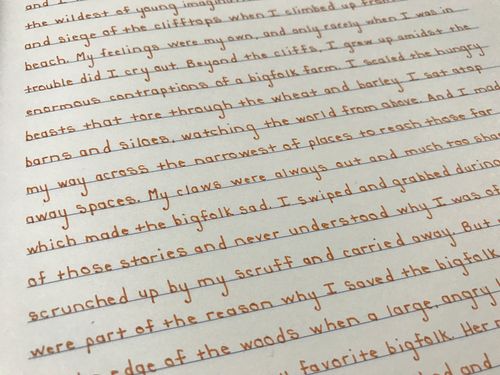 and I
the wildest of young
and siege of the clifftops when I climbed up from
beach. My feelings were my own, and only rarely when I was in
trouble did I cry out. Beyond the cliffs, I grew up amidst the
enormous contraptions of a bigfolk farm. I scaled the hungry
beasts that tore through the wheat and barley. I sat atop
barns and siloes, watching the world from above. And I mad
my way across the narrowest of places to reach those far
away spaces. My claws were always out and much too sha
which made the bigfolk sad. I swiped and grabbed durin
of those stories and never understood why I was
scrunched up by my scruff and carried away. But
were part of the reason why I saved the bigfolk
edge of the woods when a large, angry
favorite bigfolk. Her
and